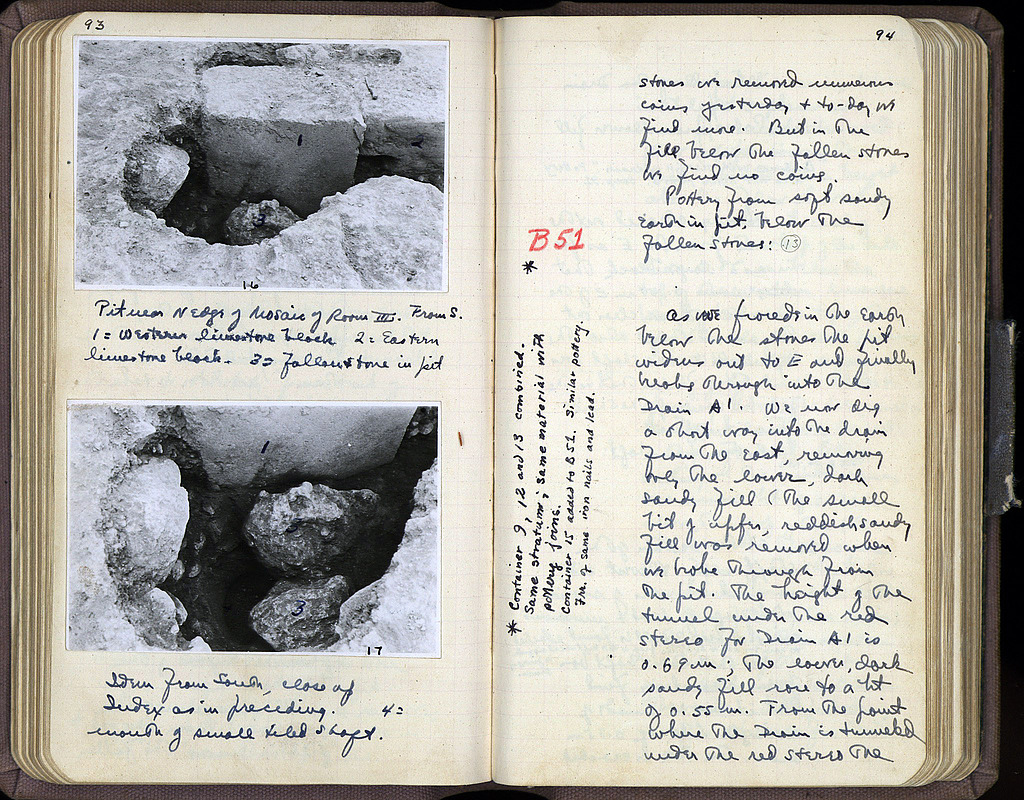 93
1
3
16
Pit near N edge of Mosaic of Room III. From S.
1 = Western limestone block 2 = Eastern
limestone block. 3 = fallen stone in pit
1
3
17
Idem from South, close up
Index as in preceding. 4 =
mouth of small tiled shaft.
94
stones we removed numerous
coins yesterday & to-day we
find more. But in the
fill below the fallen stones
we find no coins.
Pottery from soft sandy
earth in pit, below the
fallen stones: 13
B 51
*
* Container 9, 12 and 13 combined.
Same stratum; same material with
pottery joins.
Container 15 added to B51. Similar pottery.
Frs. of same iron nails and lead.
As we proceed in the earth
below the stones the pit
widens out to E and finally
breaks through into the
Drain A'. We now dig
a short way into the drain
from the East, removing
only the lower, dark
sandy fill (the small
bit of upper, reddish sandy
fill was removed when
we broke through from
the pit. The height of the
tunnel under the red
stereo for Drain A' is
0.69 m; the lower, dark
sandy fill rose to a ht
of 0.55 m. From the point
where the Drain is tunneled
under the red stereo the